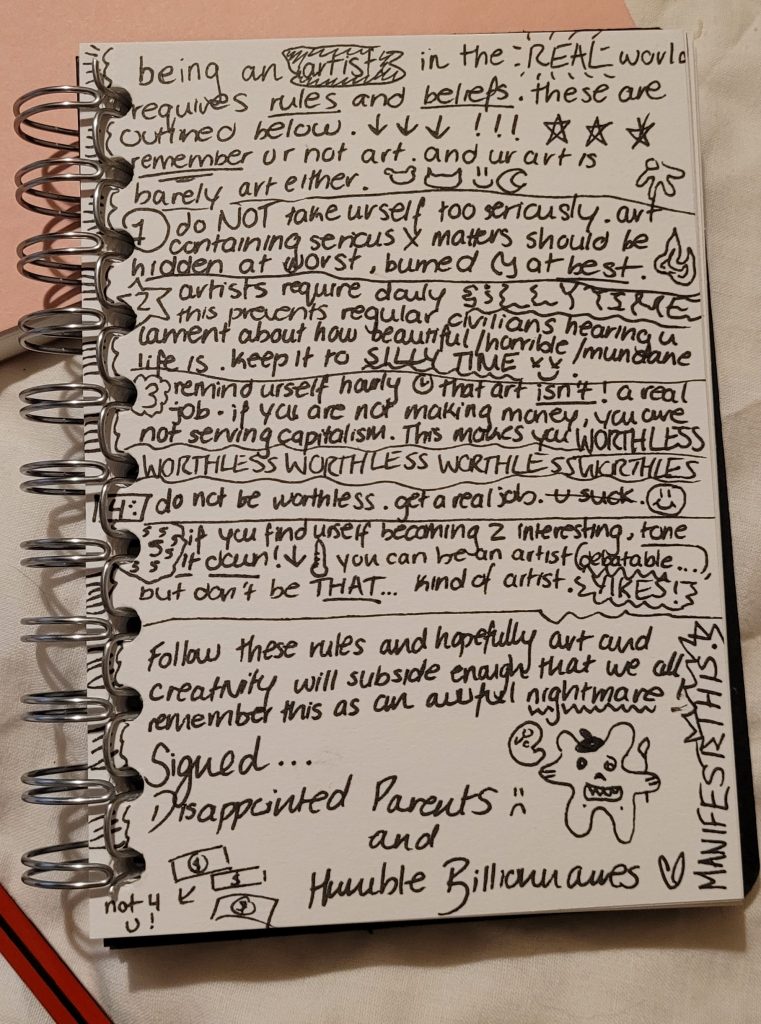 being an artist in the REAL world
requires rules and beliefs. these are
outlined below. ↓ ↓ ↓ !!!
remember ur not art. and ur art is
barely art either.
1 do NOT take urself too seriously. art
containing serious X matters should be
hidden at worst, burned at best.
2 artists require daily SILLY TIME
this prevents regular civilians hearing u
lament about how beautiful/horrible/mundane
life is. keep it to SILLY TIME
3 remind urself hourly that art isn't! a real
job. if you are not making money, you are
not serving capitalism. This makes you WORTHLESS
WORTHLESS WORTHLESS WORTHLESS WORTHLES
4: do not be worthless. get a real job. u suck.
5 if you find urself becoming 2 interesting, tone
it down! ↓ you can be an artist (debatable...)
but don't be THAT... kind of artist. YIKES!
Follow these rules and hopefully art and
creativity will subside enough that we all
remember this as an awful nightmare
MANIFEST THIS.
Signed...
Disappointed Parents
and
Humble Billionnaires
not 4
u!